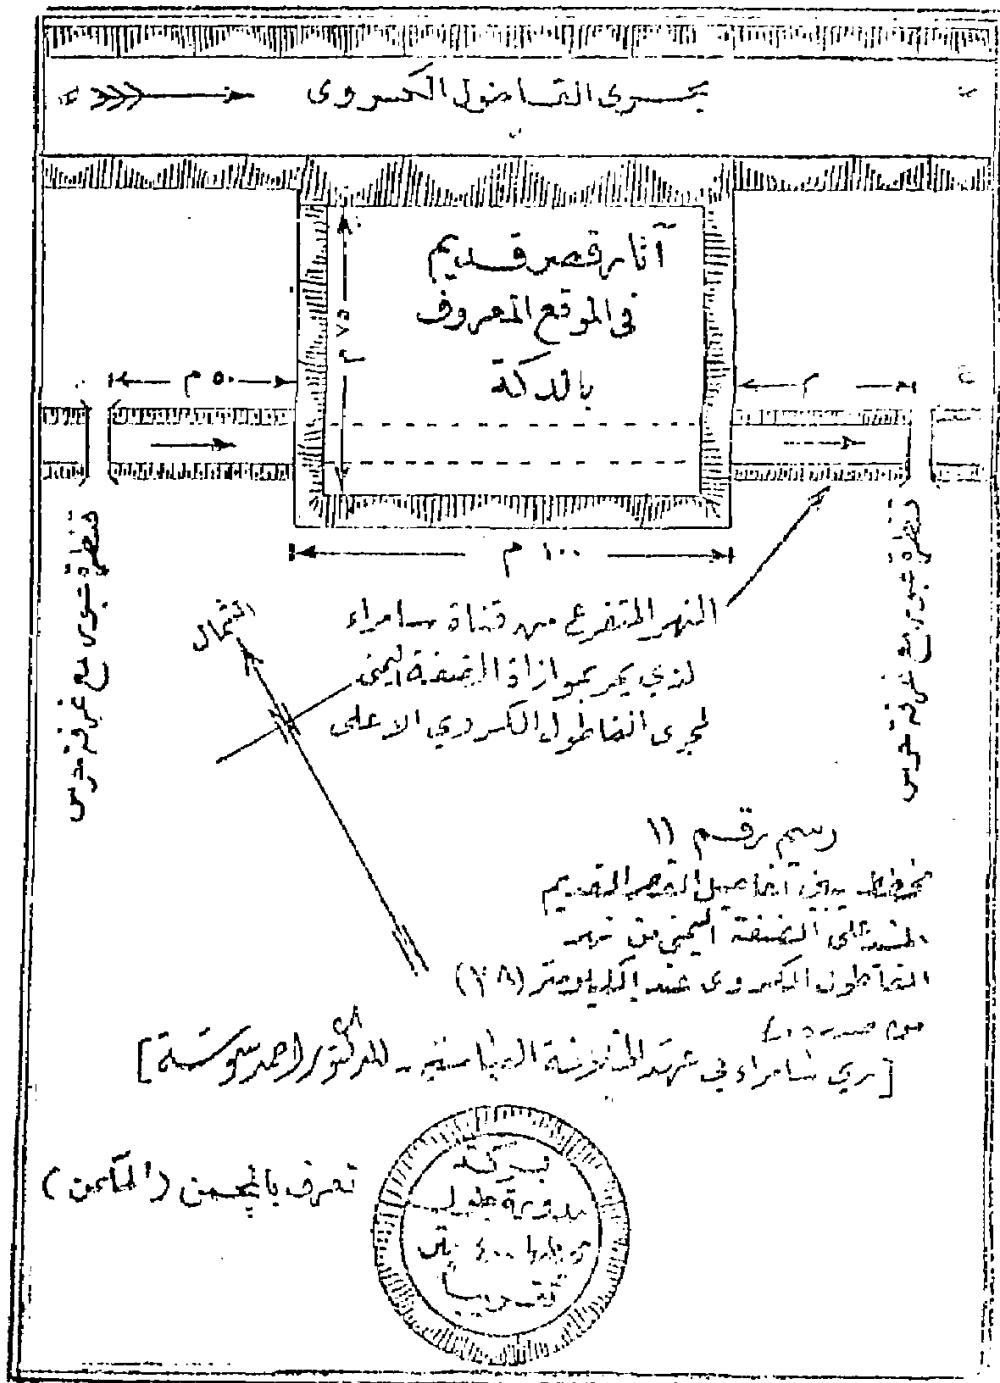 مجرى القاطول الكسروى
آثار قصر قديم
فى الموقع المعروف
بالدكة
٧٥ م
٥٠ م
م
١٠٠ م
قنطرة تبوى مع غرفة حرس
قنطرة تبوى مع غرفة حرس
الشمال
النهر المتفرع من قناة سامراء
لذي يمر بموازاة الضفة اليمنى
لمجرى القاطول الكسروي الاعلى
رسم رقم ١١
مخطط يبين تفاصيل القصر القديم
على الضفة اليمنى من نهر
القاطول الكسروى عند الكيلومتر (٧٨)
من
[ري سامراء في عهد الخلافة العباسية - للدكتور احمد سوسة]
تعرف بالمجن (المآجن)
بركة
مدورة بطول
٤٠٠ متر
تقريباً